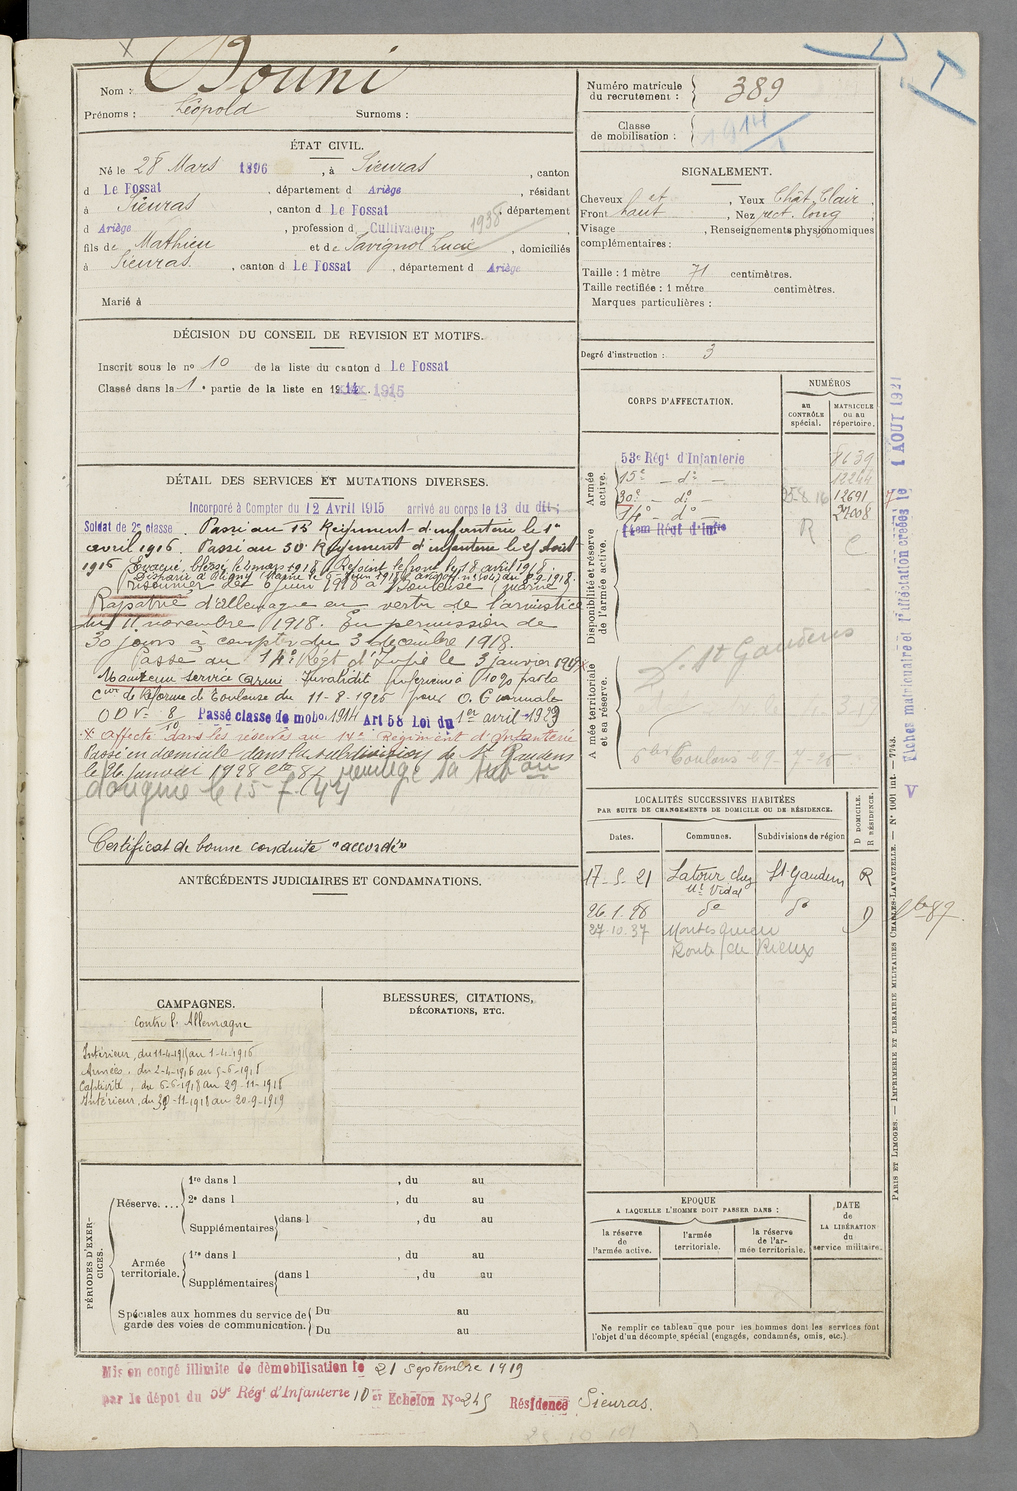 Nom : Bouni
Prénoms : Léopold Surnoms :
ÉTAT CIVIL.
Né le 28 Mars 1896, à Sieuras, canton
d Le Fossat, département d Ariège, résidant
à Sieuras, canton d Le Fossat, département
d Ariège, profession d Cultivateur 1938,
fils de Mathieu et de Savignol Lucie, domiciliés
à Sieuras, canton d Le Fossat, département d Ariège
Marié à
DÉCISION DU CONSEIL DE REVISION ET MOTIFS.
Inscrit sous le nº 10 de la liste du canton d Le Fossat
Classé dans la 1e partie de la liste en 1914. 1915
DÉTAIL DES SERVICES ET MUTATIONS DIVERSES.
Incorporé à Compter du 12 Avril 1915 arrivé au corps le 13 du dit
Soldat de 2e classe. Passé au 15 Régiment d'infanterie le 1er
avril 1916. Passé au 30e Régiment d'infanterie le 25 Août
1916 Evacué, blessé le 4 mars 1918. Rejoint le front le 18 avril 1918.
Disparu à Oligny Marne le 6 juin 1918
Prisonnier de 6 juin 1918 à (Marne)
Rapatrié d'allemagne en vertu de l'armistice
du 11 novembre 1918. En permission de
30 jours à compter du 3 décembre 1918.
Passé au 14e Régt d'Infie le 3 janvier 1919
Maintenu service armé Invalidité inférieure à 10% par la
Cion de Réforme de Toulouse du 11-8-1926 pour
Passé classe de mob. 1914 Art 58 Loi du 1er avril 1923
* affecté dans les réserves au 14e Régiment d'Infanterie
Passé en domicile dans la subdivision de St Gaudens
le 26 janvier 1928 réintégré sa subon
d'origine le 15-7-44
Certificat de bonne conduite "accordé"
ANTÉCÉDENTS JUDICIAIRES ET CONDAMNATIONS.
CAMPAGNES.
Contre l'Allemagne
Intérieur, du 11-4-1915 au 1-4-1916
Armées, du 2-4-1916 au 5-6-1918
Captivité, du 6-6-1918 au 29-11-1918
Intérieur, du 30-11-1918 au 20-9-1919
BLESSURES, CITATIONS,
DÉCORATIONS, ETC.
PÉRIODES D'EXERCICES.
Réserve....
1re dans l , du au
2e dans l , du au
Supplémentaires dans l , du au
Armée territoriale.
1re dans l , du au
Supplémentaires dans l , du au
Spéciales aux hommes du service de garde des voies de communication.
Du au
Du au
Mis en congé illimité de démobilisation le 21 septembre 1919
par le dépôt du 59e Régt d'Infanterie 10e Echelon No 245 Résidence Sieuras.
Numéro matricule du recrutement : 389
Classe de mobilisation : 1914
SIGNALEMENT.
Cheveux et, Yeux Chât. Clair,
Front haut, Nez rect. long,
Visage , Renseignements physionomiques
complémentaires :
Taille : 1 mètre 71 centimètres.
Taille rectifiée : 1 mètre centimètres.
Marques particulières :
Degré d'instruction : 3
CORPS D'AFFECTATION.
NUMÉROS
au CONTRÔLE spécial.
MATRICULE ou au répertoire.
Armée active.
53e Régt d'Infanterie 8639
15e - do - 12244
30e - do - 25.8.16 12691
14e - do - 27008
14em Régt d'Infie R C.
Disponibilité et réserve de l'armée active.
Armée territoriale et sa réserve.
St Gaudens
LOCALITÉS SUCCESSIVES HABITÉES
PAR SUITE DE CHANGEMENTS DE DOMICILE OU DE RÉSIDENCE.
D DOMICILE.
R RÉSIDENCE.
Dates. Communes. Subdivisions de région
17-5-21 Latour chez Mr Vidal St Gaudens R
26.1.28 do do D
27.10.37 Montesquieu
Route de Rieux
EPOQUE
A LAQUELLE L'HOMME DOIT PASSER DANS :
la réserve de l'armée active.
l'armée territoriale.
la réserve de l'armée territoriale.
DATE de LA LIBÉRATION du service militaire.
Ne remplir ce tableau que pour les hommes dont les services font
l'objet d'un décompte spécial (engagés, condamnés, omis, etc.).
Fiches matriculaire et d'affectation créées le 1 AOUT 1921
PARIS ET LIMOGES. — IMPRIMERIE ET LIBRAIRIE MILITAIRES CHARLES-LAVAUZELLE. — Nº 1001 int. — 7743.